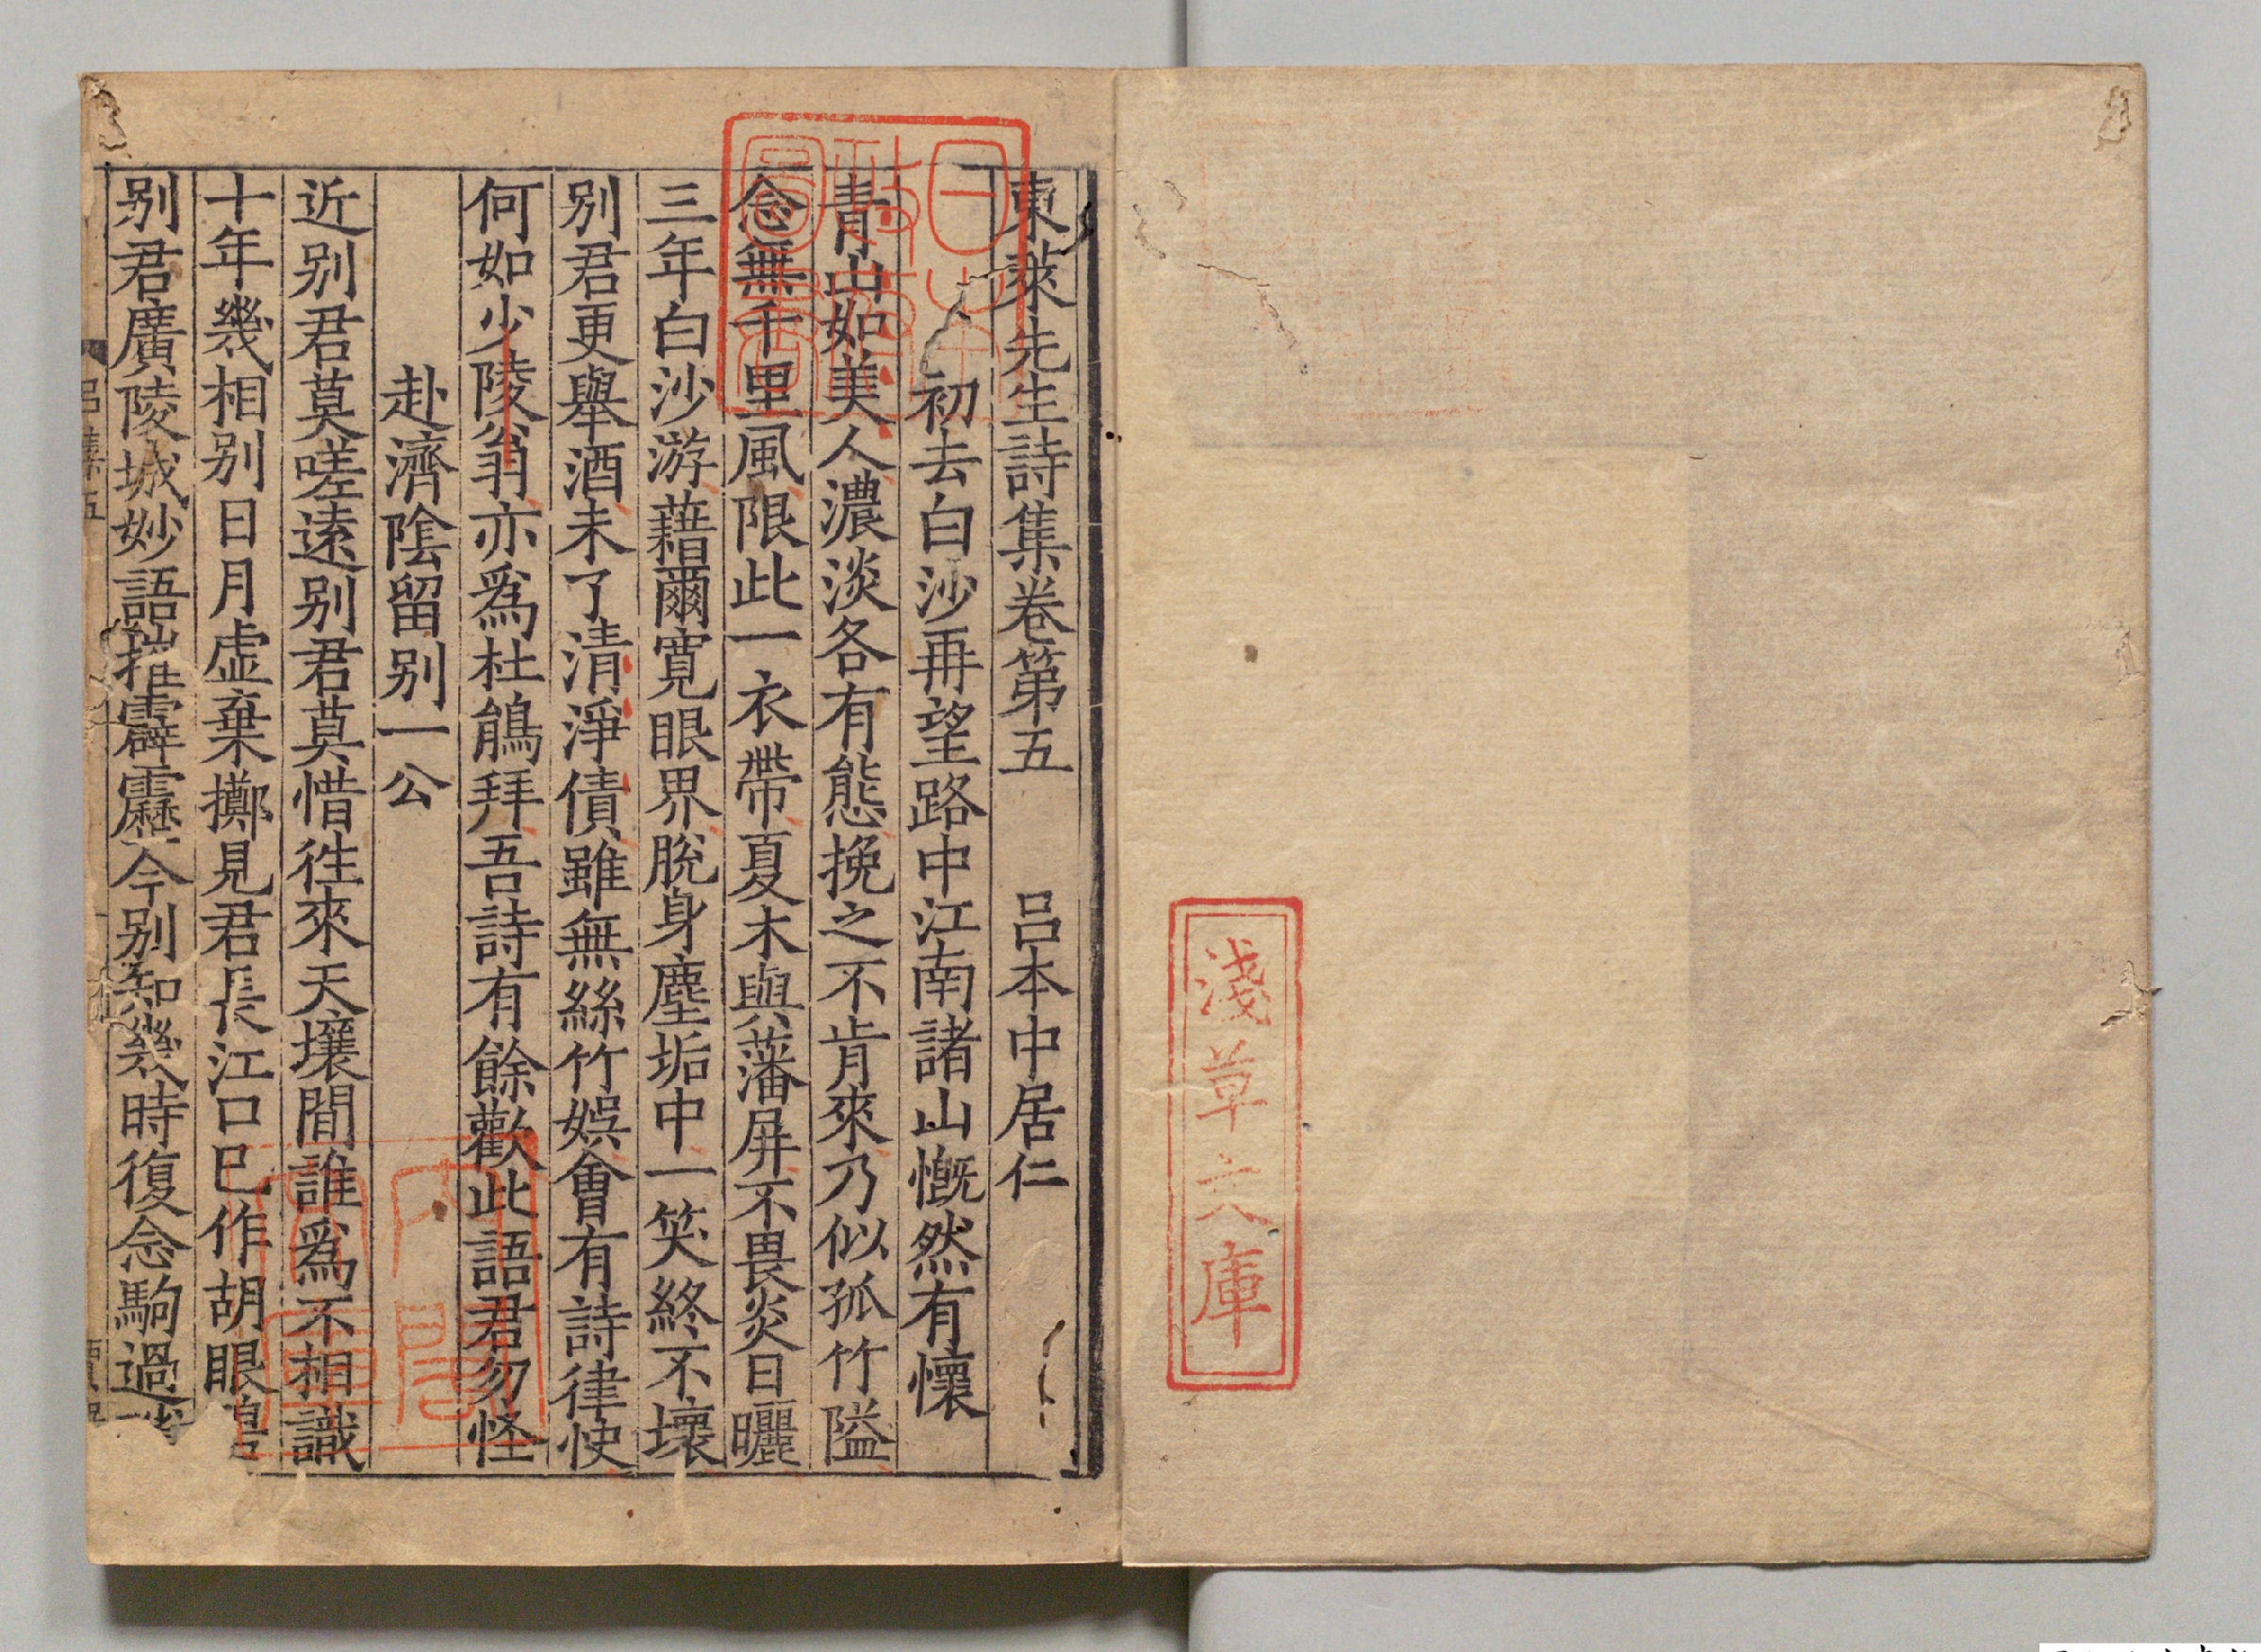 淺草文庫
東萊先生詩集卷第五　呂本中居仁
初去白沙再望路中江南諸山慨然有懷
青山如美人濃淡各有態挽之不肯來乃似孤竹隘
念無千里風限此一衣帶夏木與藩屏不畏炎日曬
三年白沙游藉爾寬眼界脫身塵垢中一笑終不壞
別君更舉酒未了清淨債雖無絲竹娛會有詩律快
何如少陵翁亦為杜鵑拜吾詩有餘歡此語君勿怪
赴濟陰留別一公
近別君莫嗟遠別君莫惜往來天壤間誰為不相識
十年幾相別日月虛棄擲見君長江口已作胡眼
別君廣陵城妙語摧霹靂今別知幾時復念駒過
呂集五